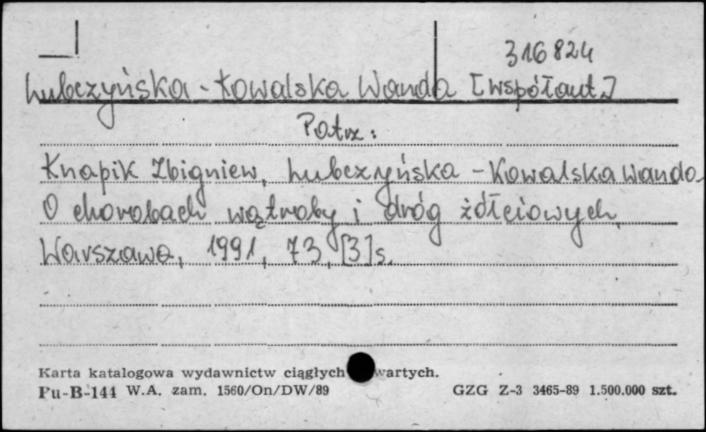 316824
Lubczyńska-Kowalska Wanda [współaut.]
Patrz:
Knapik Zbigniew, Lubczyńska-Kowalska Wanda.
O chorobach wątroby i dróg żółciowych,
Warszawa, 1991, 73, [3] s.
Karta katalogowa wydawnictw ciągłych wartych.
Pu-B-144 W.A. zam. 1560/On/DW/89 GZG Z-3 3465-89 1.500.000 szt.